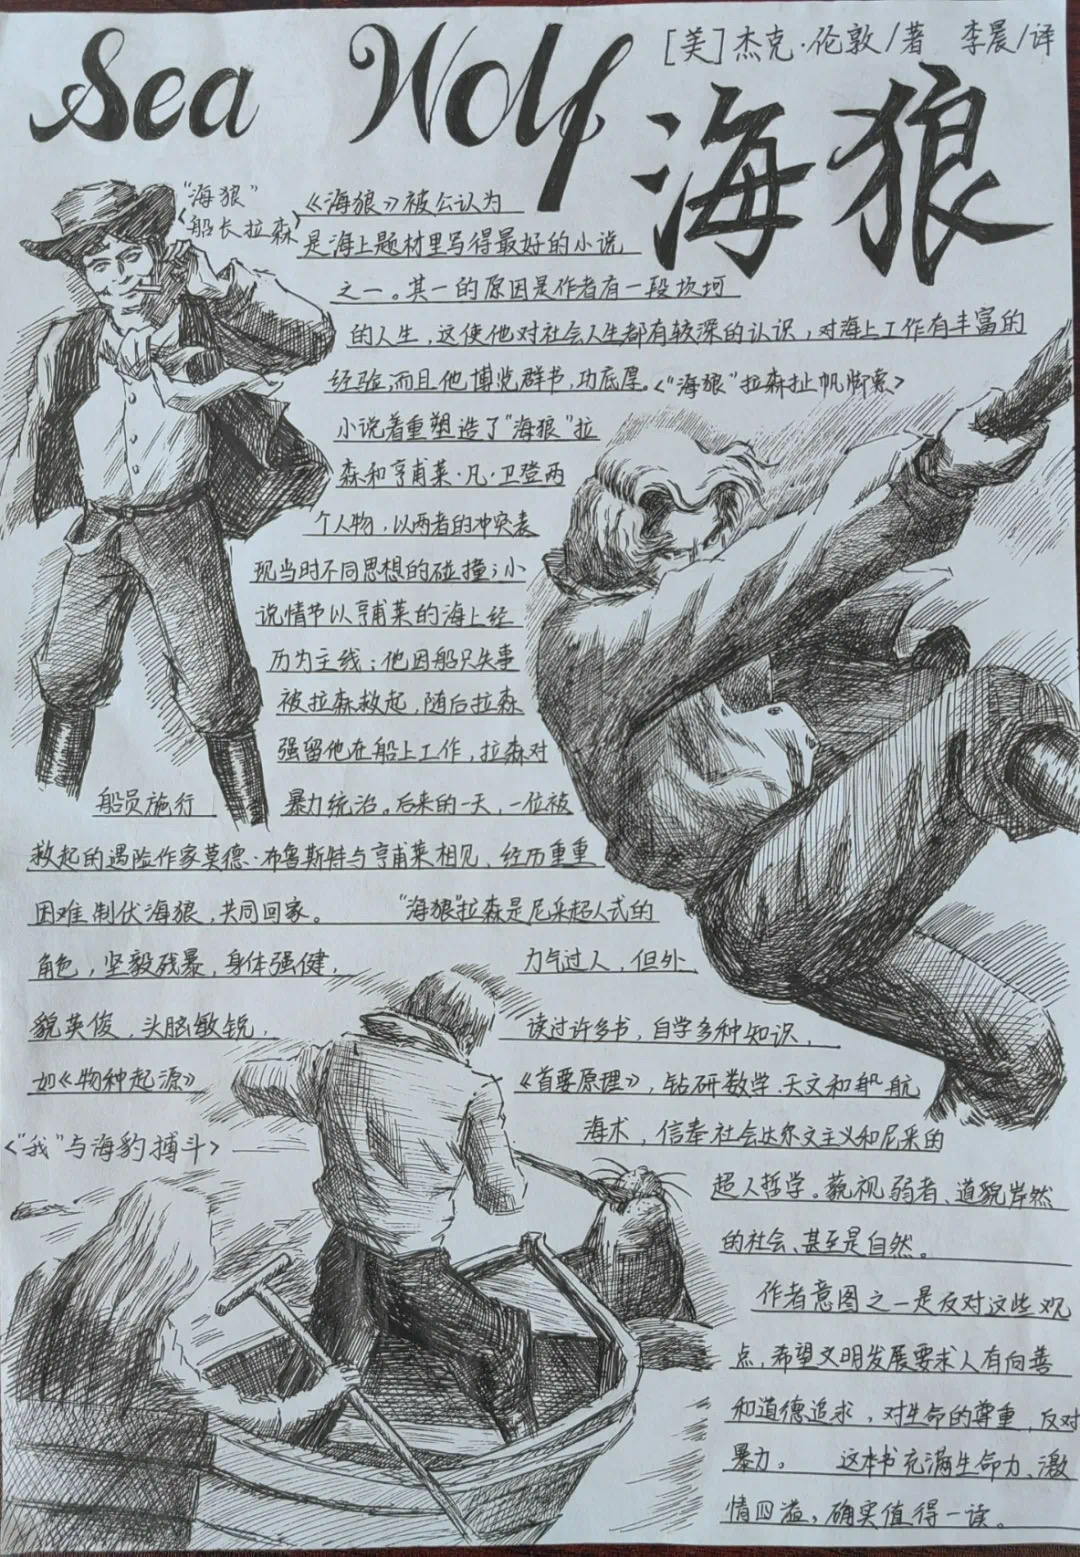 Sea Wolf
[美]杰克·伦敦/著 李晨/译
海狼
"海狼"
<船长拉森>
《海狼》被公认为
是海上题材里写得最好的小说
之一。其一的原因是作者有一段坎坷
的人生,这使他对社会人生都有较深的认识,对海上工作有丰富的
经验,而且他博览群书,功底厚。
<"海狼"拉森扯帆脚索>
小说着重塑造了"海狼"拉
森和亨甫莱·凡·卫登两
个人物,以两者的冲突表
现当时不同思想的碰撞;小
说情节以亨甫莱的海上经
历为主线:他因船只失事
被拉森救起,随后拉森
强留他在船上工作,拉森对
船员施行 暴力统治。后来的一天,一位被
救起的遇险作家莫德·布鲁斯特与亨甫莱相见、经历重重
困难,制伏海狼,共同回家。 "海狼"拉森是尼采超人式的
角色,坚毅残暴,身体强健, 力气过人,但外
貌英俊,头脑敏锐, 读过许多书,自学多种知识,
如《物种起源》 《首要原理》,钻研数学、天文和船航
海术,信奉社会达尔文主义和尼采的
<"我"与海豹搏斗>
超人哲学。藐视弱者、道貌岸然
的社会、甚至是自然。
作者意图之一是反对这些观
点,希望文明发展要求人有向善
和道德追求,对生命的尊重,反对
暴力。 这本书充满生命力、激
情四溢,确实值得一读。